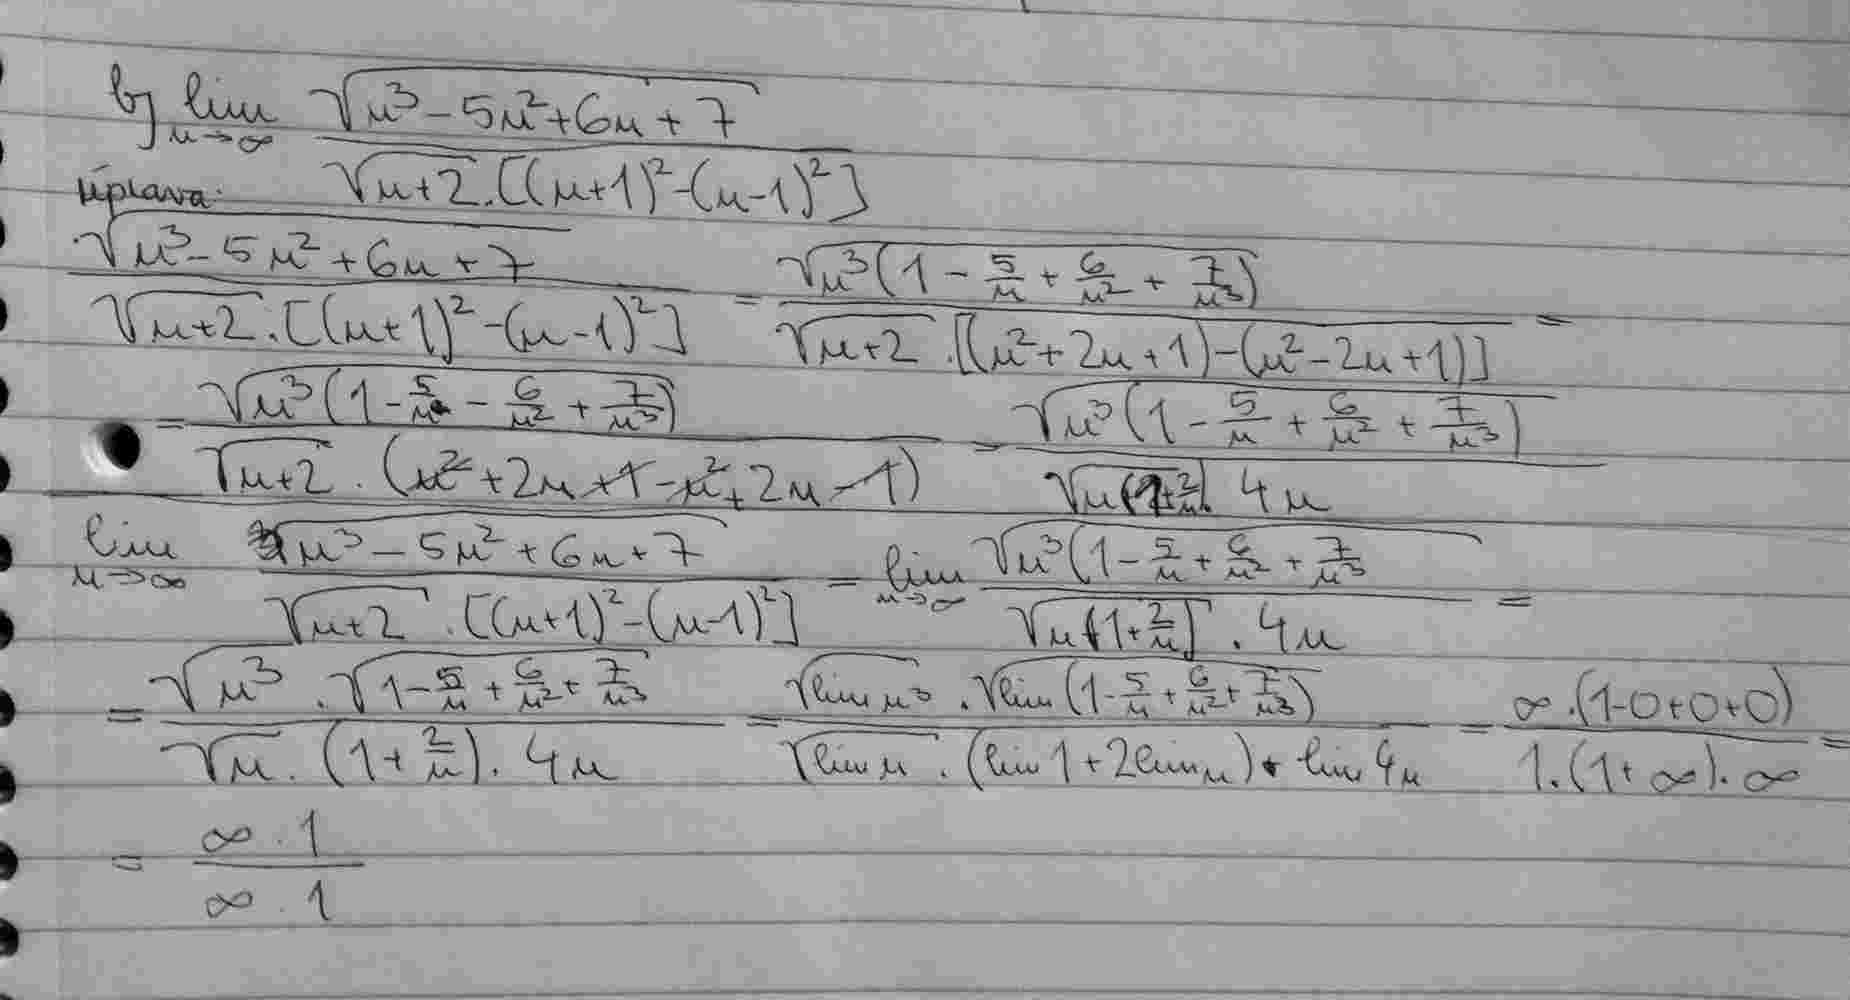 b) lim n→∞ √(n³-5n²+6n+7) / √(n+2) . [(n+1)²-(n-1)²]
úprava:
√(n³-5n²+6n+7) / √(n+2) . [(n+1)²-(n-1)²] = √(n³(1-5/n+6/n²+7/n³)) / √(n+2) . [(n²+2n+1)-(n²-2n+1)] =
= √(n³(1-5/n-6/n²+7/n³)) / √(n+2) . (n²+2n+1-n²+2n-1) = √(n³(1-5/n+6/n²+7/n³)) / √(n(1+2/n)) . 4n
lim n→∞ √(n³-5n²+6n+7) / √(n+2) . [(n+1)²-(n-1)²] = lim n→∞ √(n³(1-5/n+6/n²+7/n³) / √(n(1+2/n)) . 4n =
= √n³ . √(1-5/n+6/n²+7/n³) / √n . (1+2/n) . 4n = √(lim n³) . √(lim(1-5/n+6/n²+7/n³)) / √(lim n) . (lim 1+2lim n) . lim 4n = ∞.(1-0+0+0) / 1.(1+∞).∞ =
= ∞ . 1 / ∞ . 1